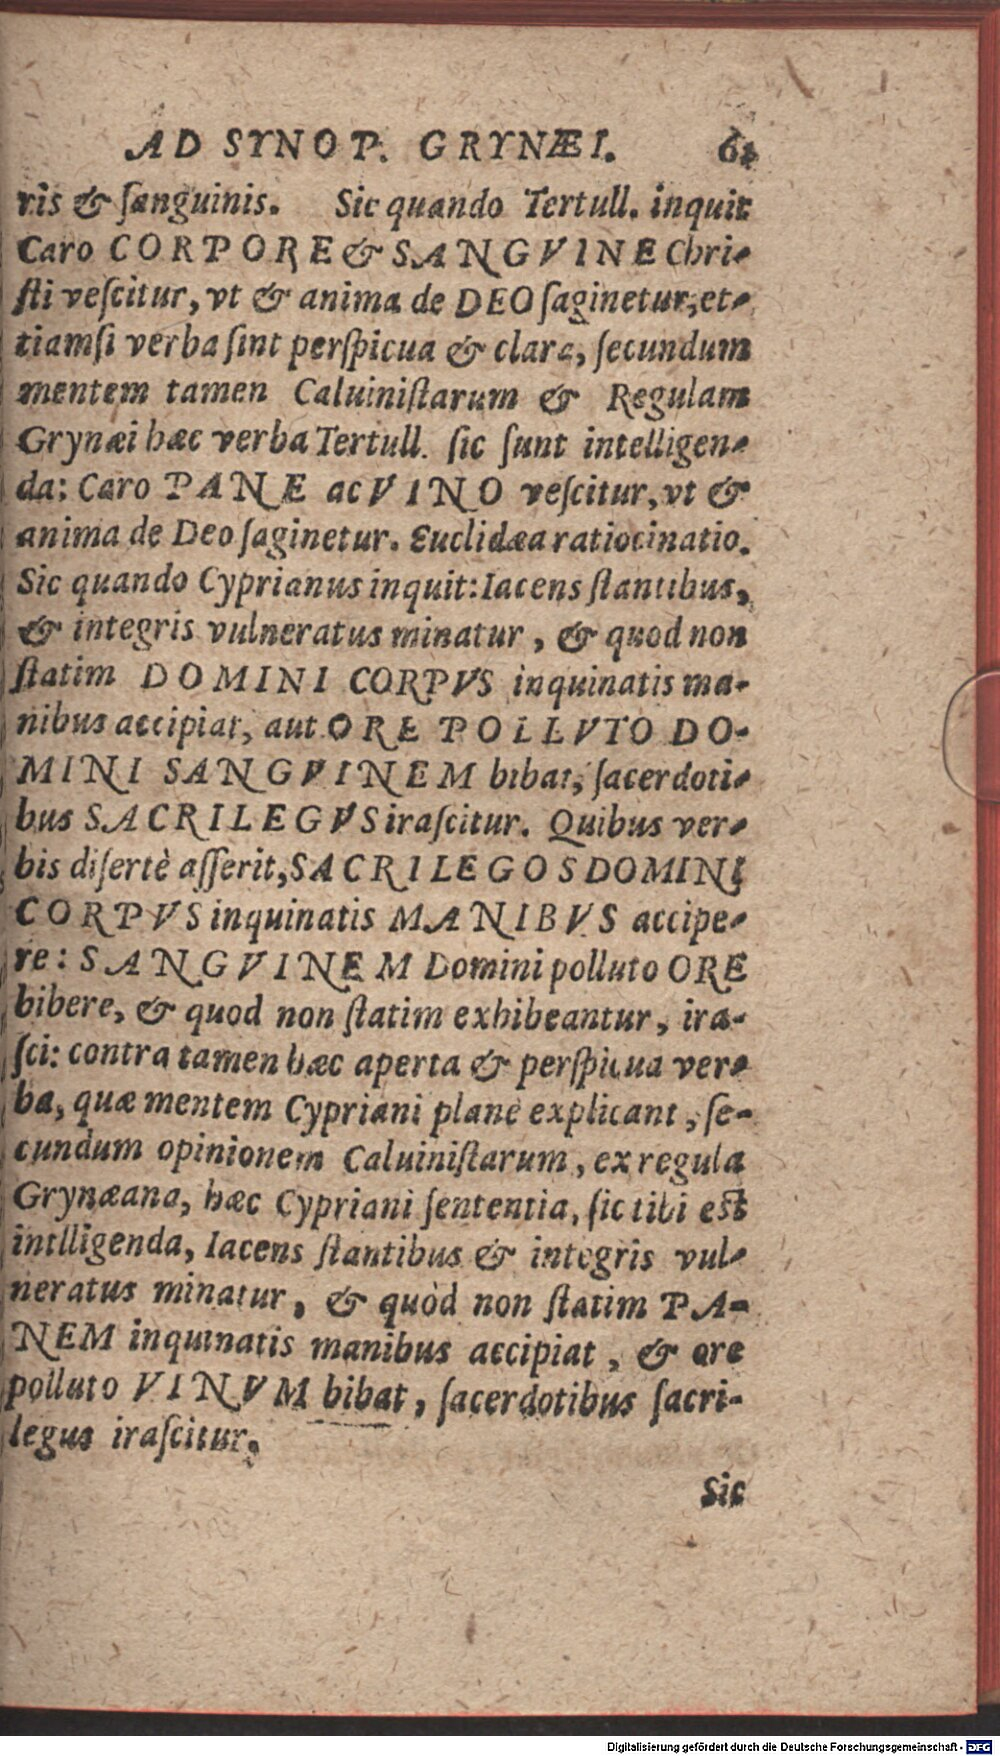 AD SYNOP. GRYNÆI. 61
ris & ſanguinis. Sic quando Tertull. inquit
Caro CORPORE & SANGVINE Chri-
ſti veſcitur, vt & anima de DEO ſaginetur, et-
tiamſi verba ſint perſpicua & clara, ſecundum
mentem tamen Caluiniſtarum & Regulam
Grynæi hæc verba Tertull. ſic ſunt intelligen-
da: Caro PANE ac VINO veſcitur, vt &
anima de Deo ſaginetur. Euclidæa ratiocinatio.
Sic quando Cyprianus inquit: Iacens ſtantibus,
& integris vulneratus minatur, & quod non
ſtatim DOMINI CORPVS inquinatis ma-
nibus accipiat, aut ORE POLLVTO DO-
MINI SANGVINEM bibat, ſacerdoti-
bus SACRILEGVS iraſcitur. Quibus ver-
bis diſertè aſſerit, SACRILEGOS DOMINI
CORPVS inquinatis MANIBVS accipe-
re: SANGVINEM Domini polluto ORE
bibere, & quod non ſtatim exhibeantur, ira-
ſci: contra tamen hæc aperta & perſpicua ver-
ba, quæ mentem Cypriani planè explicant, ſe-
cundum opinionem Caluiniſtarum, ex regula
Grynæana, hæc Cypriani ſententia, ſic tibi eſt
intlligenda, Iacens ſtantibus & integris vul-
neratus minatur, & quòd non ſtatim PA-
NEM inquinatis manibus accipiat, & ore
polluto VINVM bibat, ſacerdotibus ſacri-
legus iraſcitur.
Sic
Digitalisierung gefördert durch die Deutsche Forschungsgemeinschaft - DFG